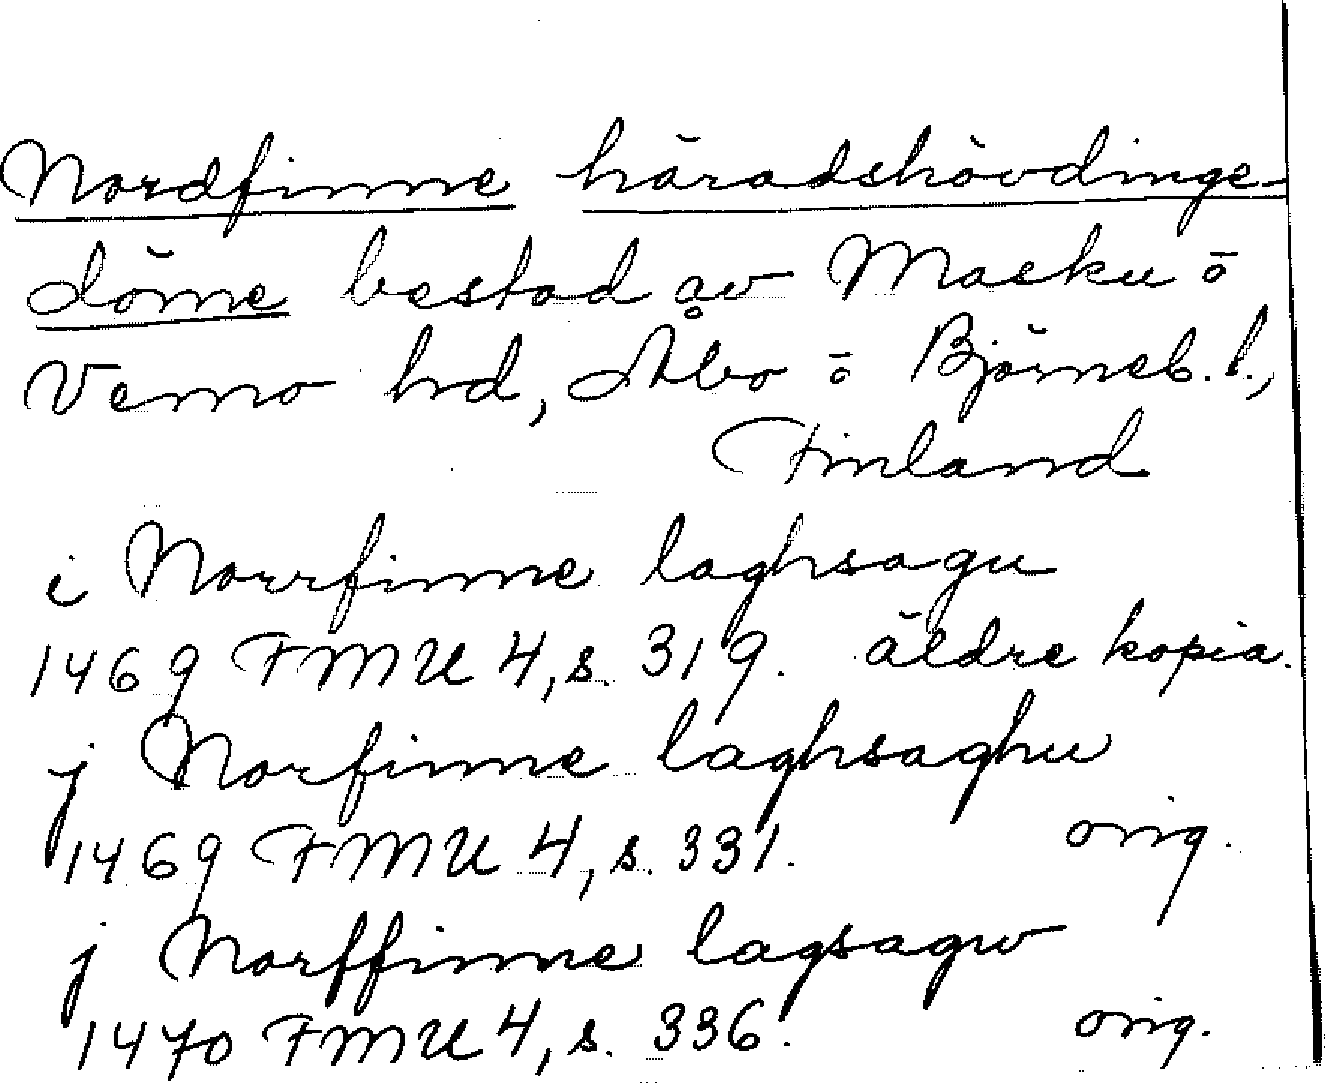 Nordfinne häradshövdinge-
döme bestod av Masku o
Vemo hrd, Åbo o Björneb. l.,
Finland
i Norrfinne laghsagu
1469 FMU 4, s. 319. äldre kopia.
j Norfinne laghsaghu
1469 FMU 4, s. 331. orig.
j Norffinne lagsagw
1470 FMU 4, s. 336. orig.